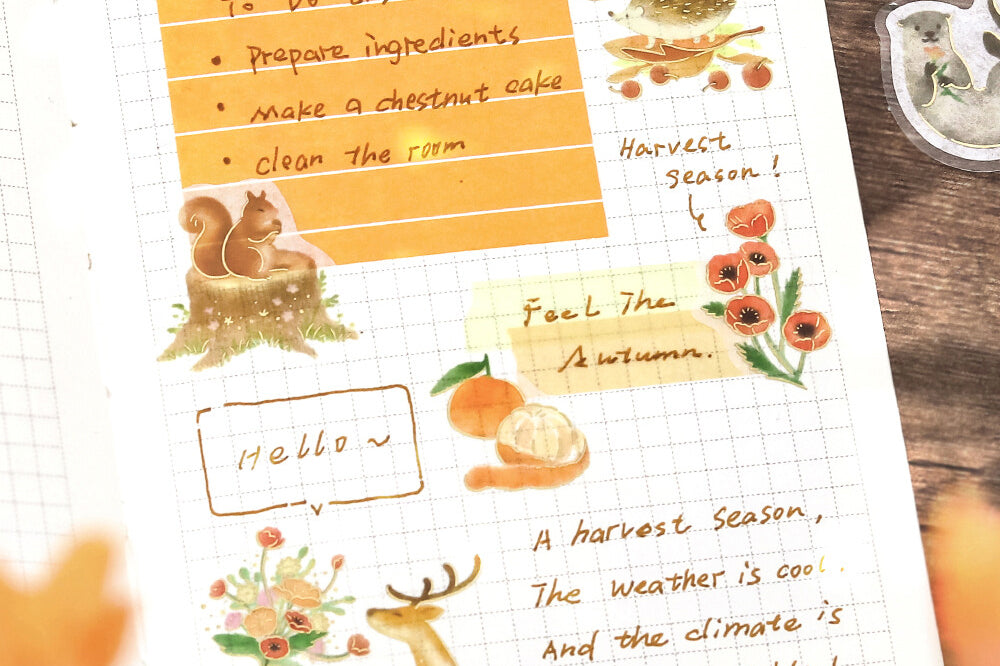 To Do
• Prepare ingredients
• Make a chestnut cake
• clean the room
Harvest
season!
Feel The
Autumn.
Hello ~
A harvest season,
The weather is cool.
And the climate is